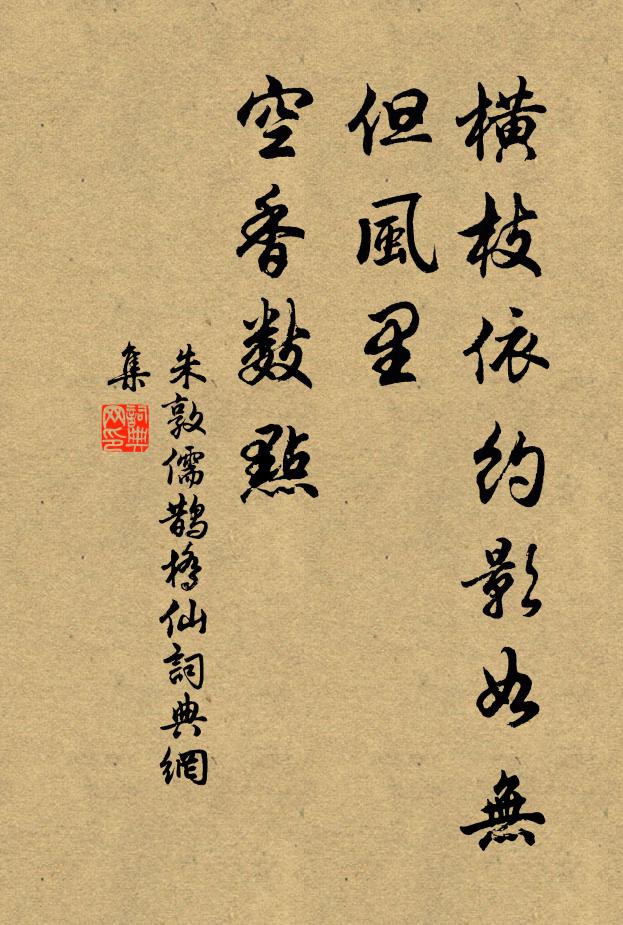 橫枝依約影如無
但風里
空香數點
朱敦儒鵲橋仙詞典網
集
詞典
网印